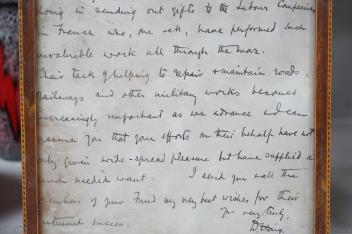 doing in sending out gifts to the Labour Companies
in France who, one & all, have performed such
invaluable work all through the war.
Their task of helping to repair & maintain roads,
railways and other military works becomes
increasingly important as we advance and I can
assure you that your efforts on their behalf have not
only given wide-spread pleasure but have supplied a
much needed want. I send you all the
members of your Fund my very best wishes for their
continued success.
Yrs very truly,
D Haig.